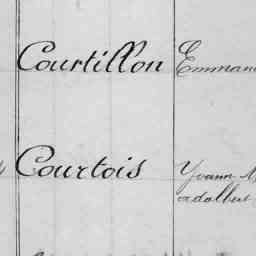 Courtillon Emmanu
Courtois Yvann
adalbert